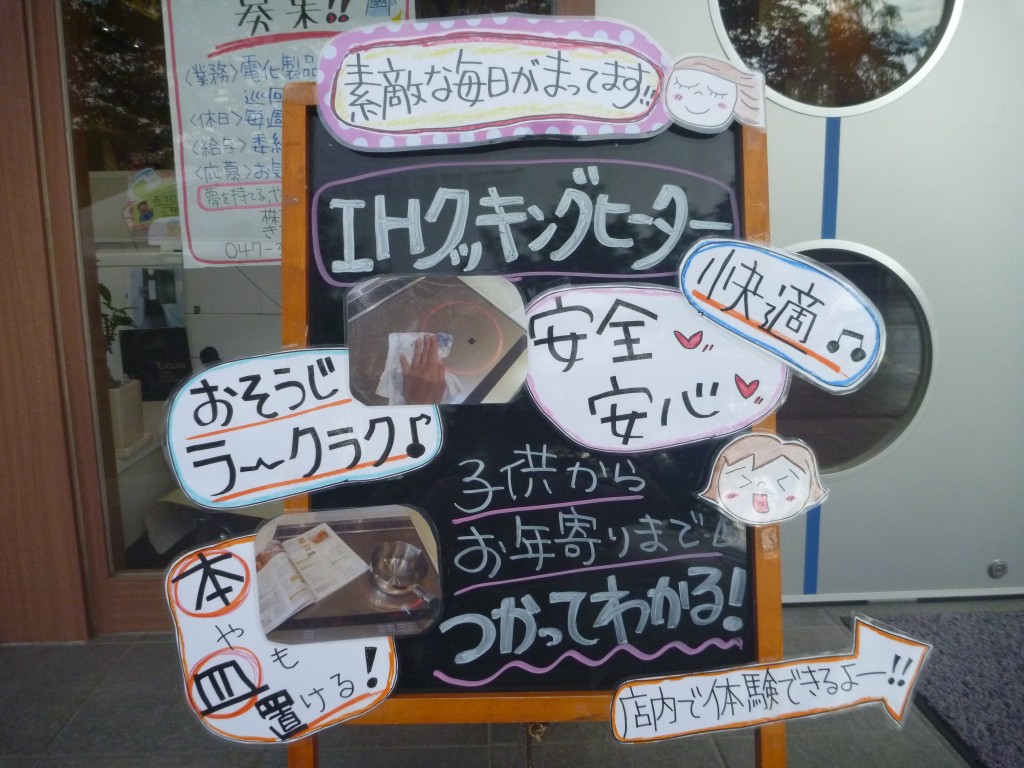 募集!!
<業務>電化製品
巡回
<休日>毎週
<給与>委細
<応募>お気
夢を持てる、や
株
047-3
素敵な毎日がまってます!!
IHクッキングヒーター
快適♫
安全
安心
おそうじ
ラ〜クラク♪
子供から
お年寄りまで
つかってわかる!
本
や
皿も
置ける!
店内で体験できるよー!!